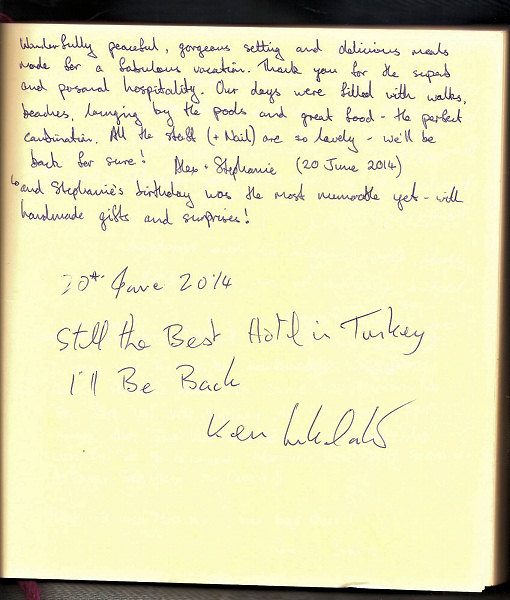 Wonderfully peaceful, gorgeous setting and delicious meals
made for a fabulous vacation. Thank you for the superb
and personal hospitality. Our days were filled with walks,
beaches, lounging by the pools and great food - the perfect
combination. All the staff (+ Nail) are so lovely - we'll be
back for sure! Alex + Stephanie (20 June 2014)
↳ and Stephanie's birthday was the most memorable yet - with
handmade gifts and surprises!
20th June 2014
Still the Best Hotel in Turkey
I'll Be Back
Ken